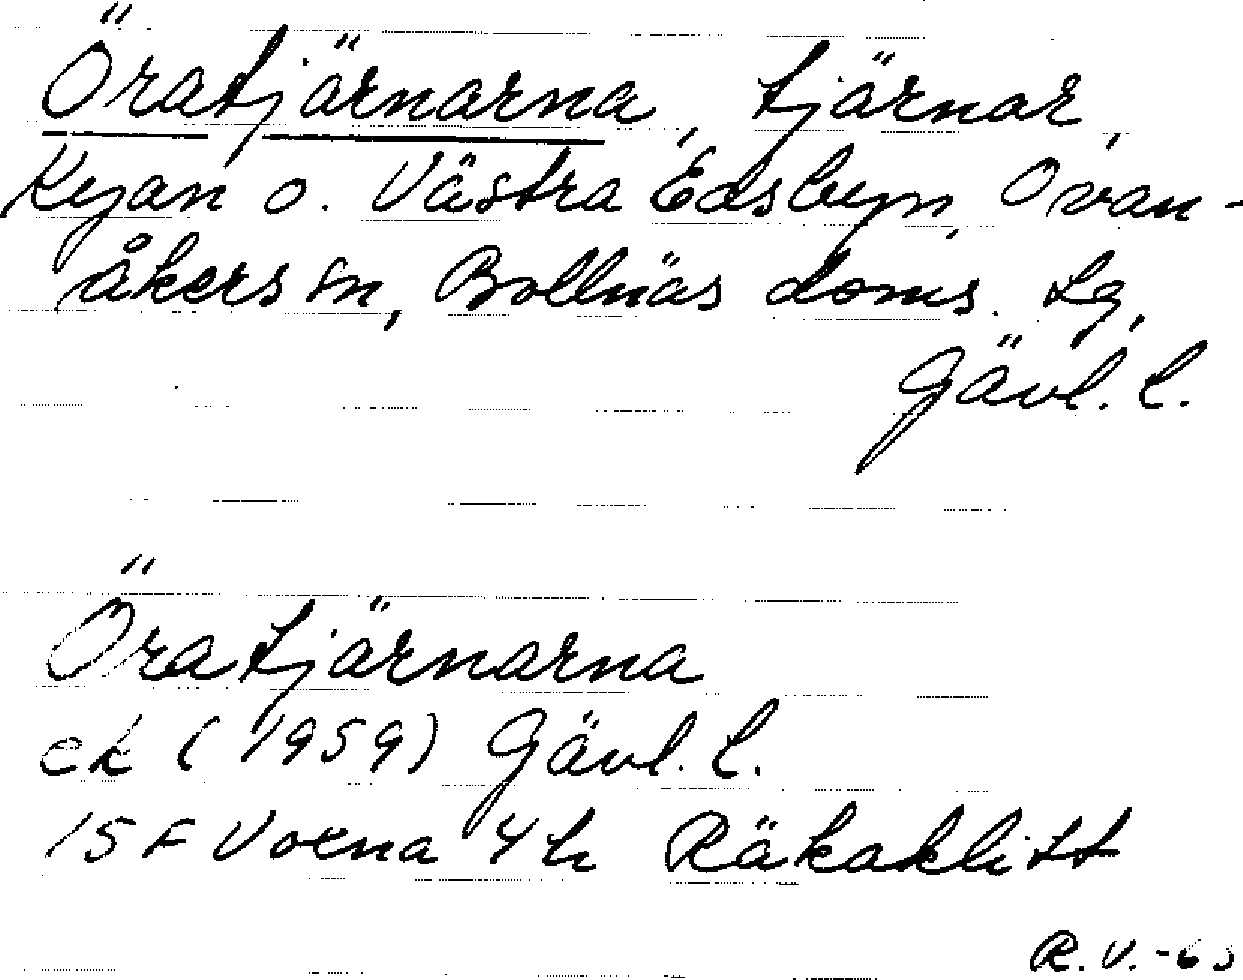 Öratjärnarna, tjärnar,
Kyan o. Västra Edsbyn, Ovan-
åkers sn, Bollnäs doms. tg,
Gävl. l.
Öratjärnarna
ek (1959) Gävl. l.
15 F Voxna 4 h Räkaklitt
R.V. -63